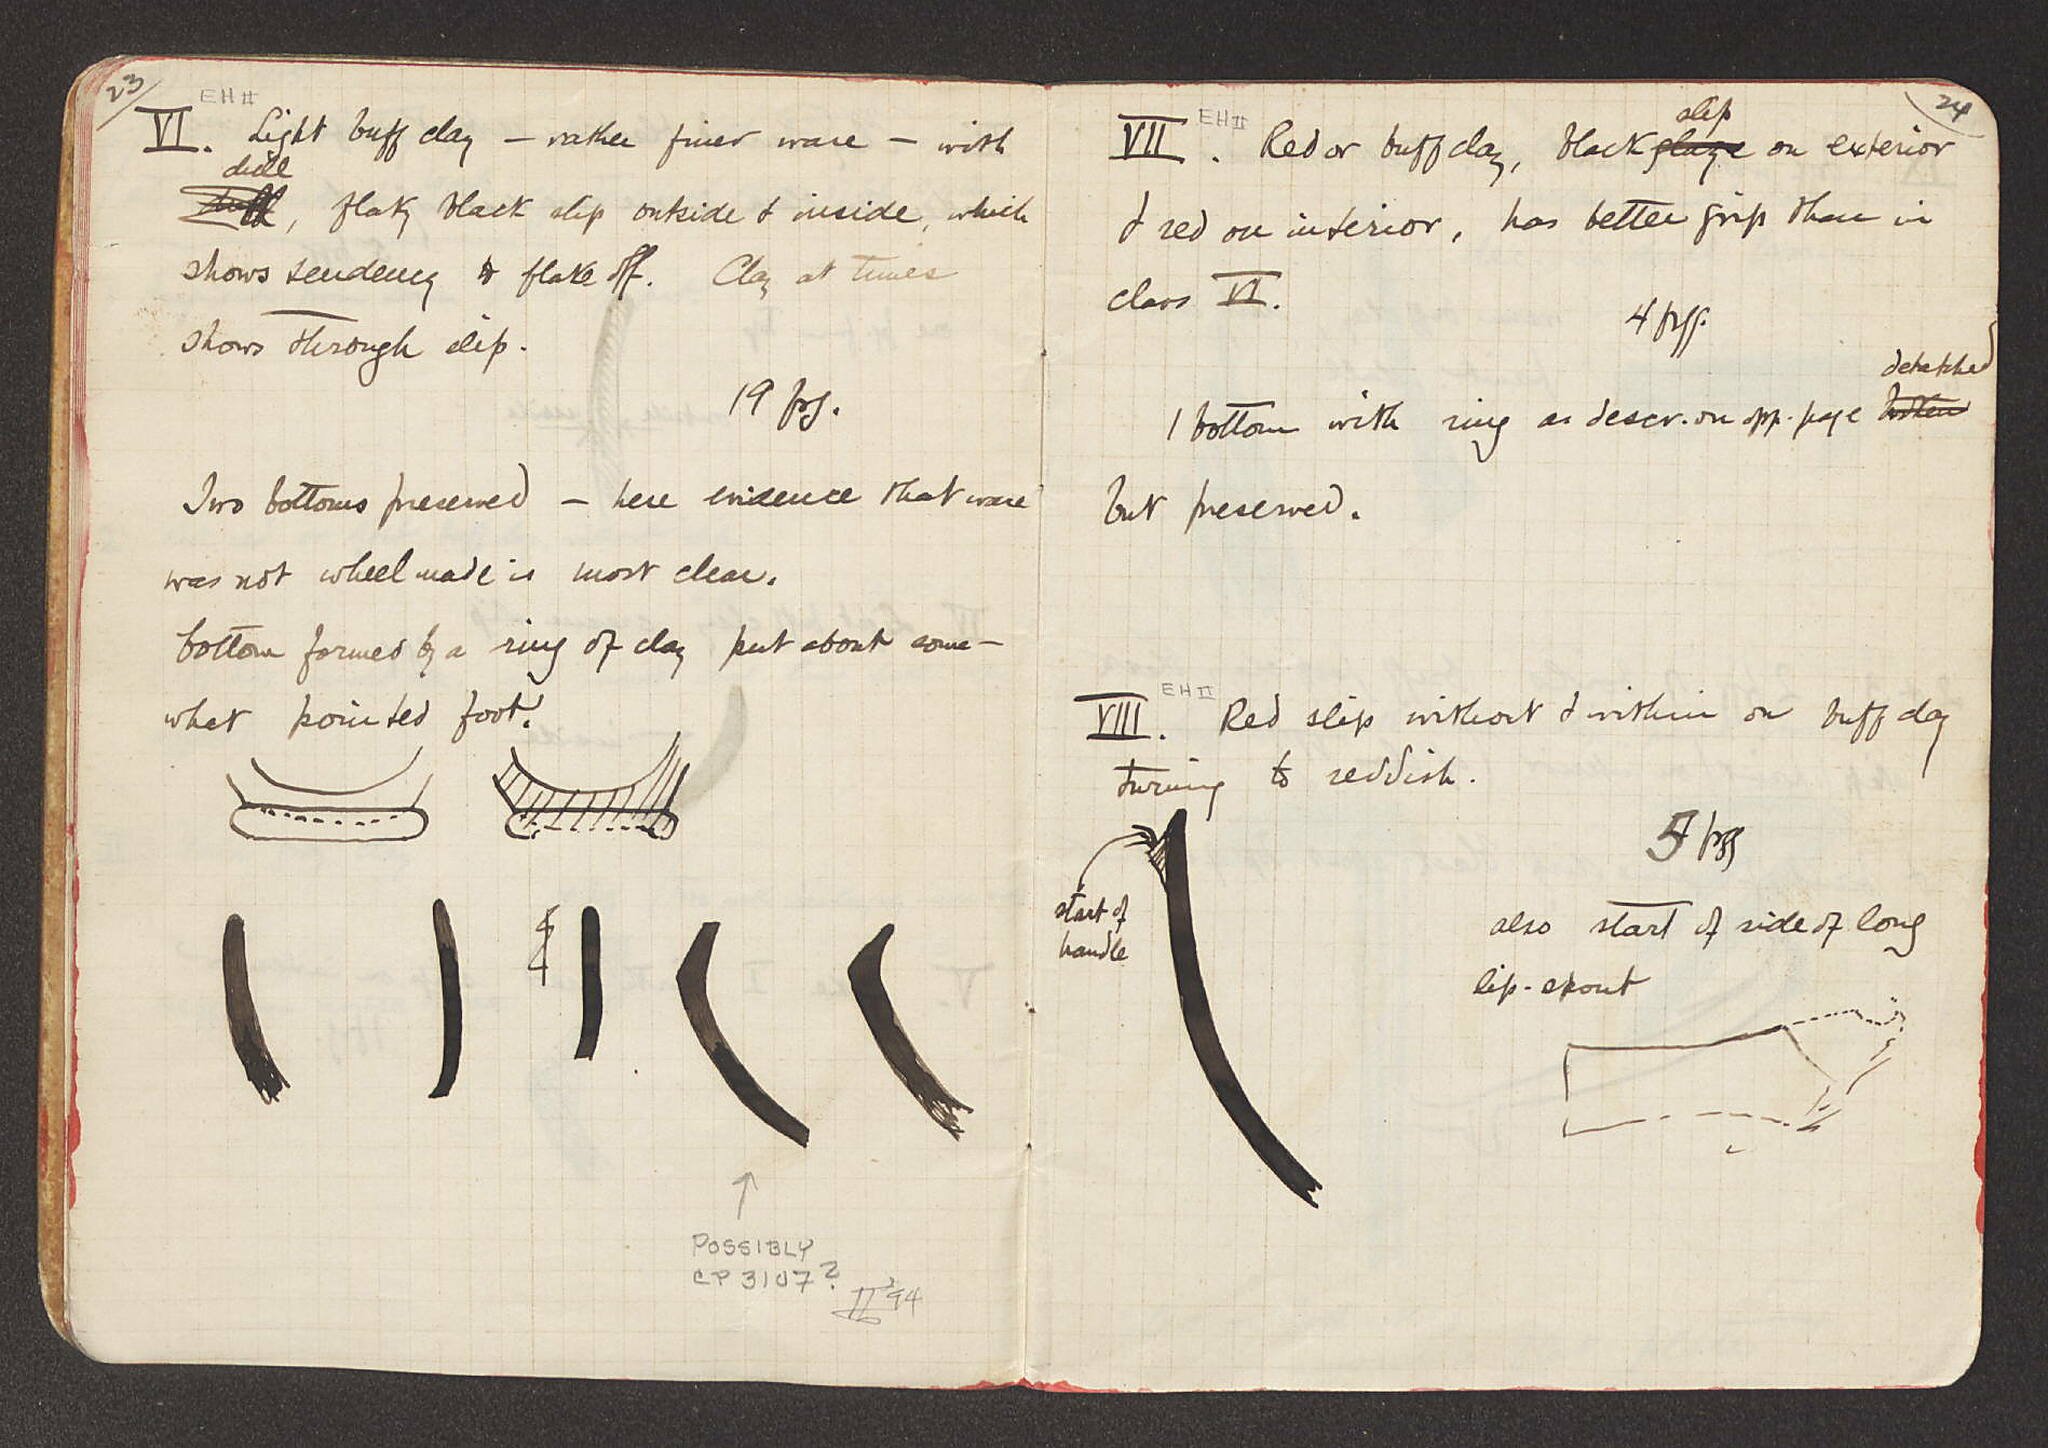 23
EH II
VI. Light buff clay – rather finer ware – with
dull
, flaky black slip outside & inside, which
shows tendency to flake off. Clay at times
shows through slip.
19 frg.
Two bottoms preserved – here evidence that ware
was not wheelmade is most clear.
bottom formed by a ring of clay put about some-
what pointed foot.
POSSIBLY
CP 3107?
'94
24
EH II
slip
VII. Red or buff clay, black glaze on exterior
& red on interior, has better grip than in
class VI.
4 frgg.
detatched
1 bottom with ring as descr. on opp. page broken
but preserved.
EH II
VIII. Red slip without & within on buff clay
turning to reddish.
5 frgg
start of
handle
also start of side of long
lip-spout